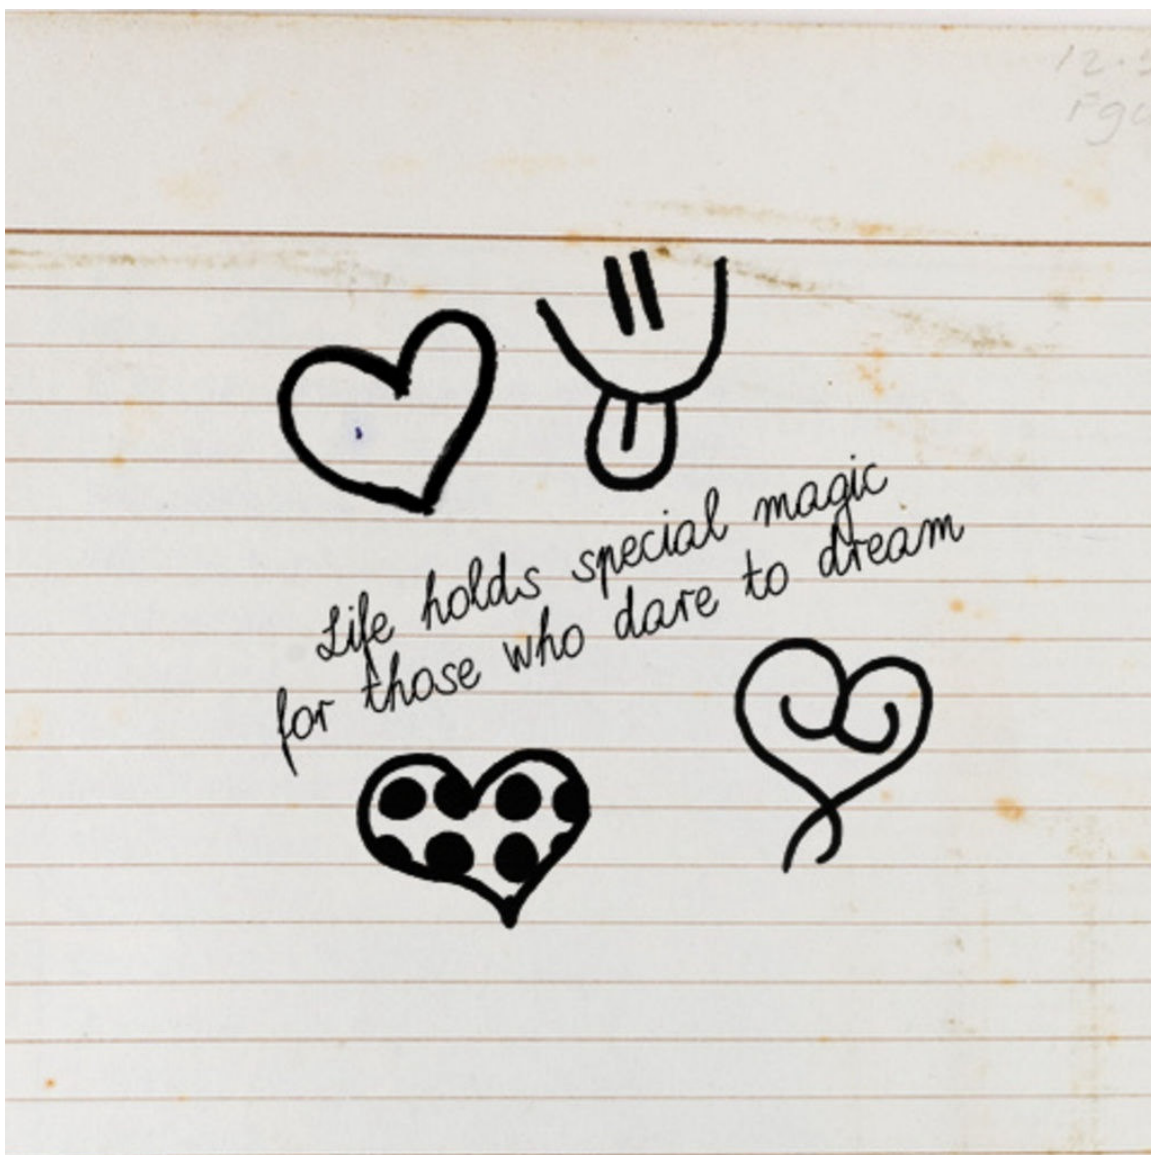 Life holds special magic
for those who dare to dream